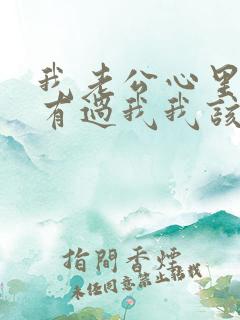 我老公心里
有過我我該
指間香煙
未经同意禁止转载